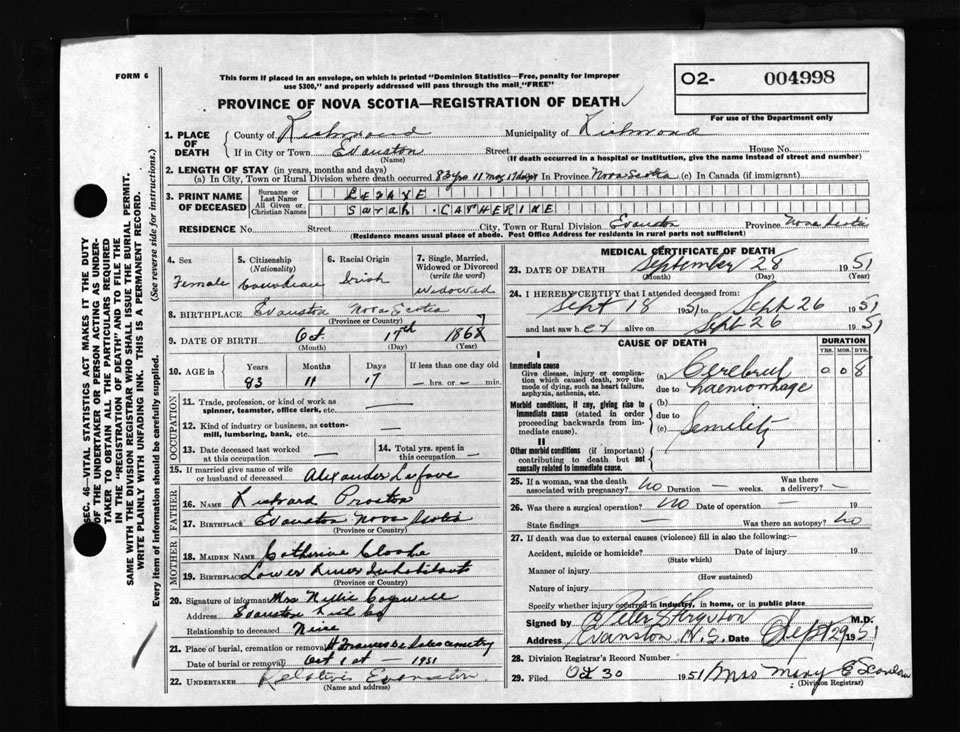 FORM 6
This form if placed in an envelope, on which is printed "Dominion Statistics—Free, penalty for improper
use $300," and properly addressed will pass through the mail "FREE"
O2- 004998
For use of the Department only
PROVINCE OF NOVA SCOTIA—REGISTRATION OF DEATH
SEC. 46—VITAL STATISTICS ACT MAKES IT THE DUTY
OF THE UNDERTAKER OR PERSON ACTING AS UNDER-
TAKER TO OBTAIN ALL THE PARTICULARS REQUIRED
IN THE "REGISTRATION OF DEATH" AND TO FILE THE
SAME WITH THE DIVISION REGISTRAR WHO SHALL ISSUE THE BURIAL PERMIT.
WRITE PLAINLY WITH UNFADING INK. THIS IS A PERMANENT RECORD.
Every item of information should be carefully supplied. (See reverse side for instructions.)
1. PLACE OF DEATH
County of Richmond Municipality of Richmond
If in City or Town Evanston Street House No.
(Name) (If death occurred in a hospital or institution, give the name instead of street and number)
2. LENGTH OF STAY (in years, months and days)
(a) In City, Town or Rural Division where death occurred 83 yrs 11 mos 17 days In Province Nova Scotia (c) In Canada (if immigrant)
3. PRINT NAME OF DECEASED
Surname or Last Name
All Given or Christian Names Sarah CATHERINE
RESIDENCE No. Street City, Town or Rural Division Evanston Province Nova Scotia
(Residence means usual place of abode. Post Office Address for residents in rural parts not sufficient)
4. Sex Female
5. Citizenship (Nationality) Canadian
6. Racial Origin Irish
7. Single, Married, Widowed or Divorced (write the word) widowed
8. BIRTHPLACE Evanston Nova Scotia
(Province or Country)
9. DATE OF BIRTH Oct. 17th 1867
(Month) (Day) (Year)
10. AGE in Years Months Days If less than one day old
83 11 17 — hrs. or — min.
OCCUPATION
11. Trade, profession, or kind of work as
spinner, teamster, office clerk, etc. —
12. Kind of industry or business, as cotton-
mill, lumbering, bank, etc. —
13. Date deceased last worked
at this occupation —
14. Total yrs. spent in
this occupation —
15. If married give name of wife
or husband of deceased Alexander
FATHER
16. NAME Richard Proctor
17. BIRTHPLACE Evanston Nova Scotia
(Province or Country)
MOTHER
18. MAIDEN NAME Catherine
19. BIRTHPLACE Lower River Inhabitants
(Province or Country)
20. Signature of informant Mrs Nellie
Address Evanston Rich Co
Relationship to deceased Niece
21. Place of burial, cremation or removal St Frances de Sales cemetery
Date of burial or removal Oct 1st — 1951
22. UNDERTAKER Relatives Evanston
(Name and address)
MEDICAL CERTIFICATE OF DEATH
23. DATE OF DEATH September 28 1951
(Month) (Day) (Year)
24. I HEREBY CERTIFY that I attended deceased from:
Sept 18 1951 to Sept 26 1951
and last saw her alive on Sept 26 1951
CAUSE OF DEATH
DURATION
YRS. MOS. DYS.
I
Immediate cause
Give disease, injury or complica-
tion which caused death, not the
mode of dying, such as heart failure,
asphyxia, asthenia, etc.
(a) Cerebral 0 0 8
due to haemorrhage
Morbid conditions, if any, giving rise to
immediate cause (stated in order
proceeding backwards from im-
mediate cause).
(b)
due to
(c) Senility
II
Other morbid conditions (if important)
contributing to death but not
causally related to immediate cause.
25. If a woman, was the death
associated with pregnancy? no Duration — weeks. Was there
a delivery? —
26. Was there a surgical operation? no Date of operation — 19
State findings — Was there an autopsy? no
27. If death was due to external causes (violence) fill in also the following:
Accident, suicide or homicide? Date of injury 19
(State which)
Manner of injury
(How sustained)
Nature of injury
Specify whether injury occurred in industry, in home, or in public place
Signed by Peter S Ferguson M.D.
Address Evanston N.S. Date Sept 29 1951
28. Division Registrar's Record Number
29. Filed Oct 30 1951 Mrs Mary E
(Division Registrar)